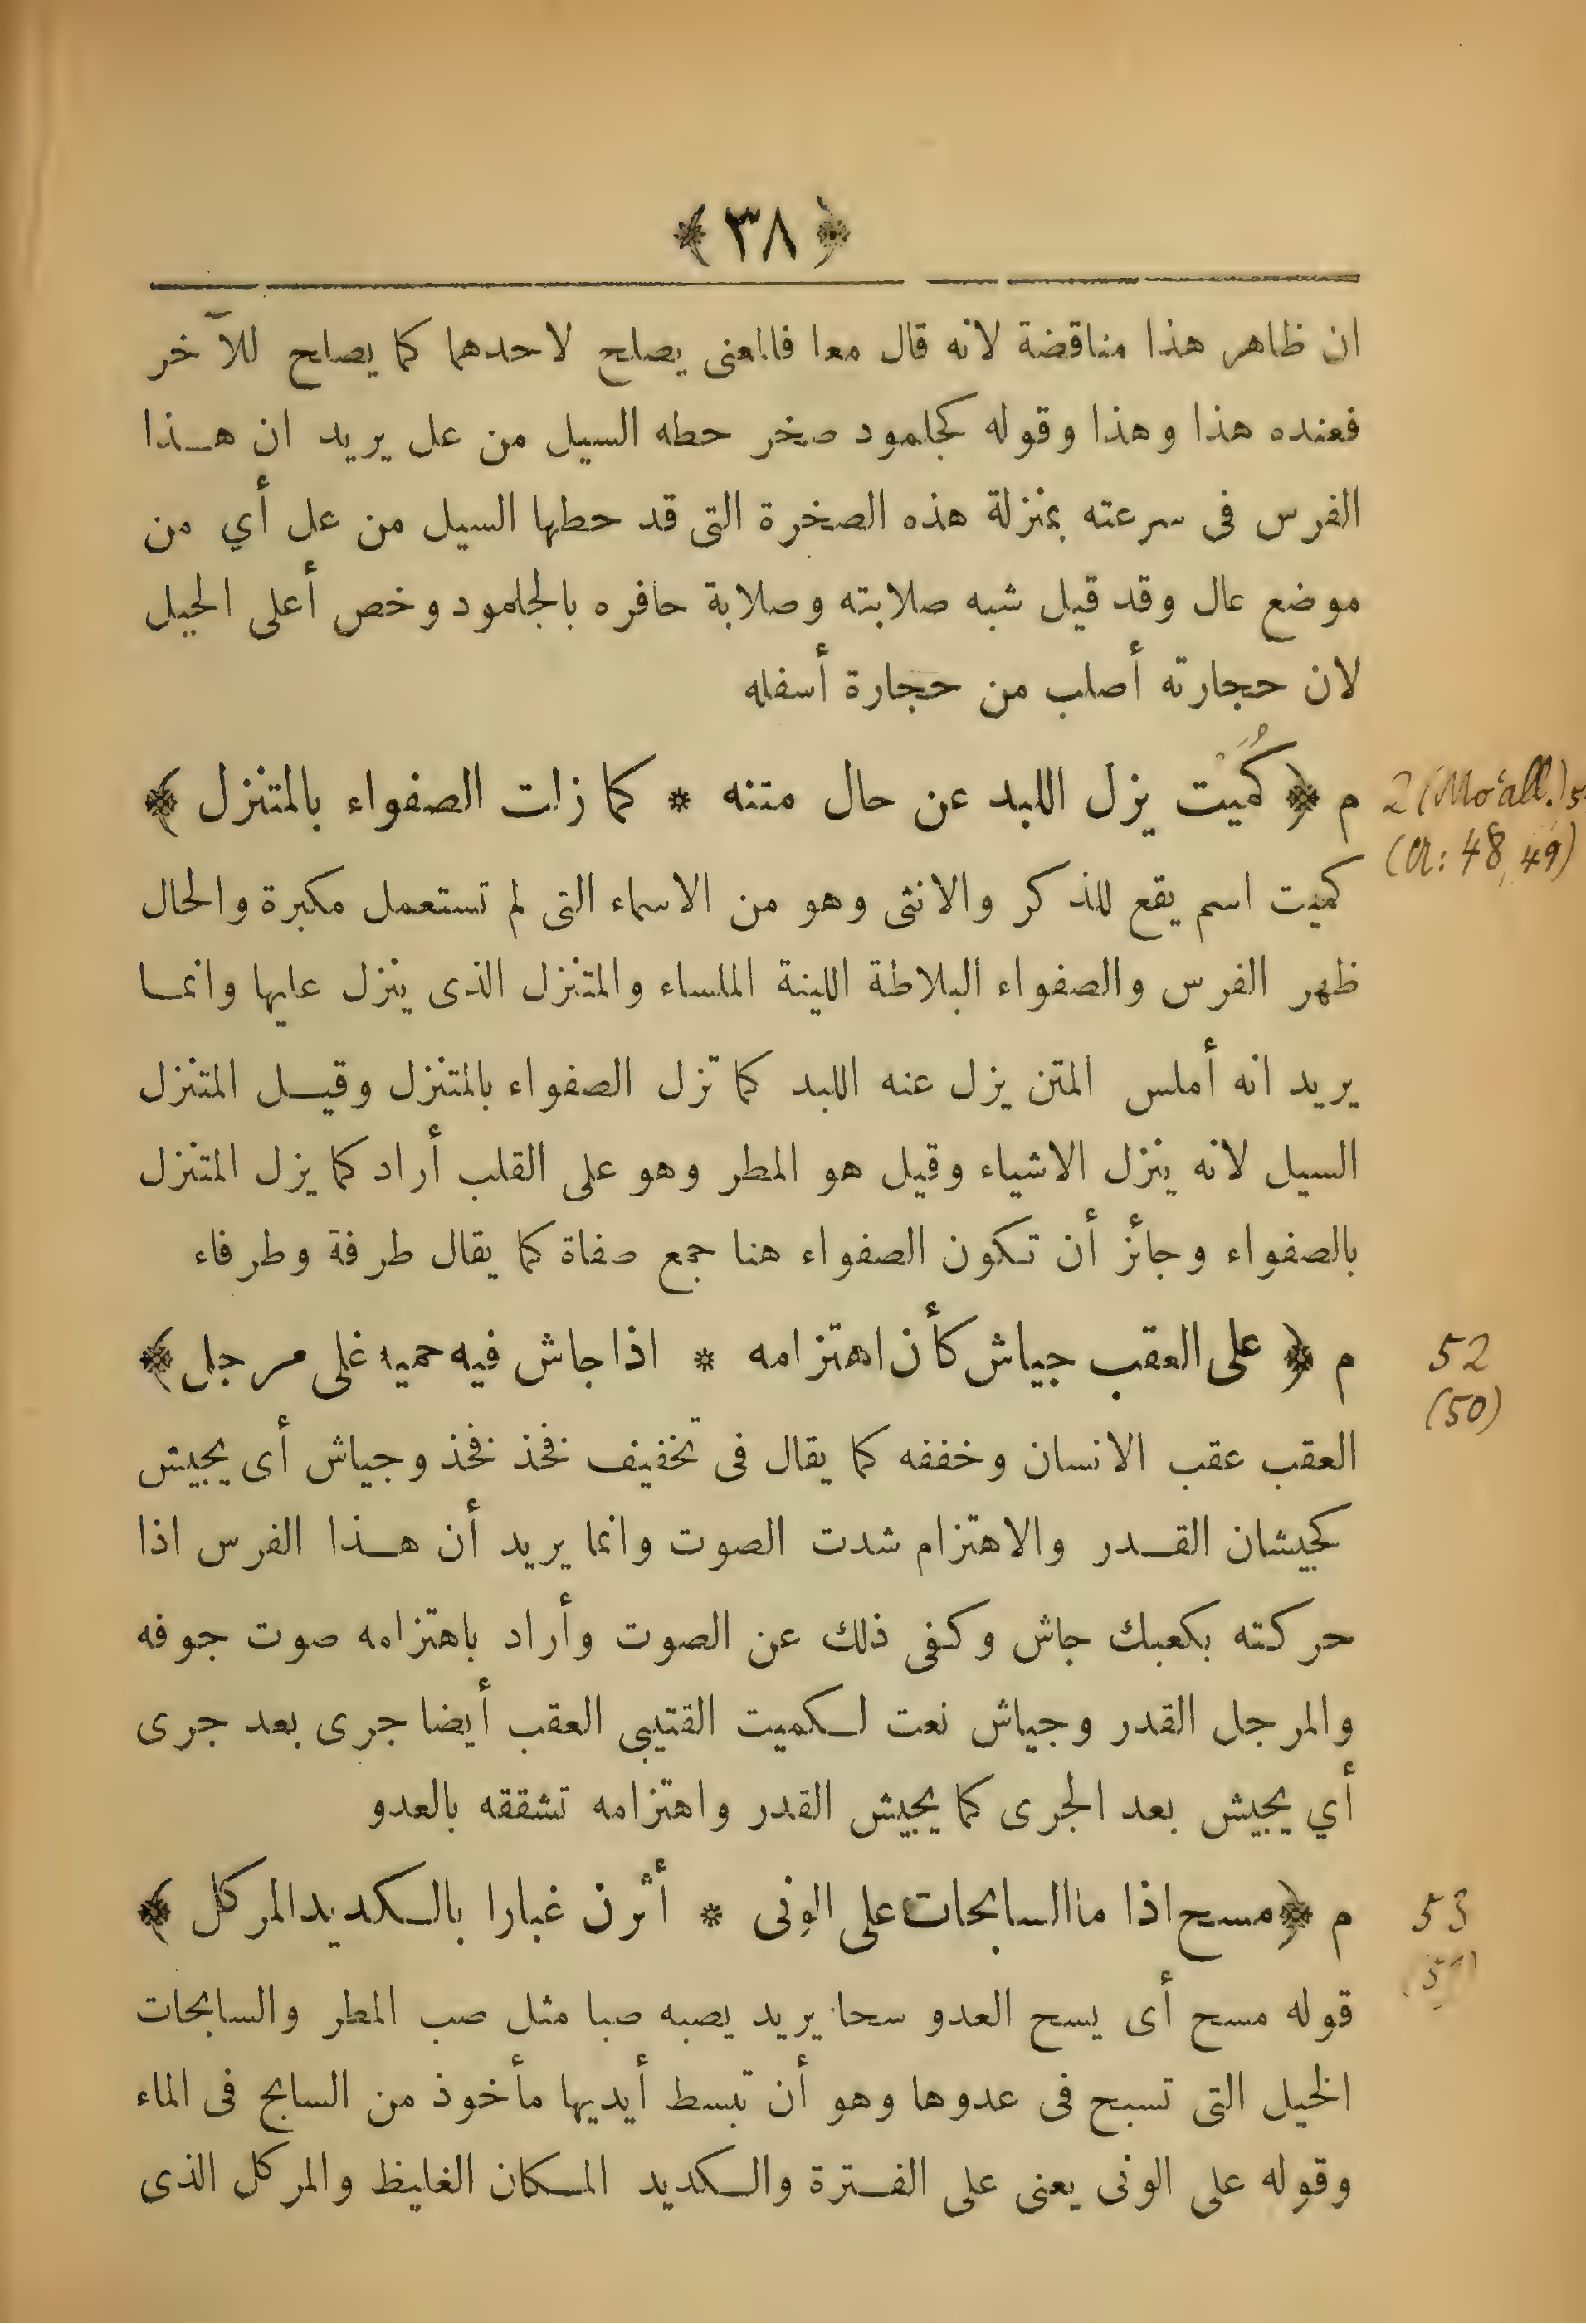 ﴿ ٣٨ ﴾
ان ظاهر هذا مناقضة لانه قال معا فالمعنى يصلح لاحدهما كما يصلح للآخر
فعنده هذا وهذا وقوله كجلمود صخر حطه السيل من عل يريد ان هـذا
الفرس فى سرعته بمنزلة هذه الصخرة التى قد حطها السيل من عل أي من
موضع عال وقد قيل شبه صلابته وصلابة حافره بالجلمود وخص أعلى الجبل
لان حجارته أصلب من حجارة أسفله
م ﴿ كُمَيْت يزل اللبد عن حال متنه * كما زلت الصفواء بالمتنزل ﴾ 2 (Mo'all.) 5
(A: 48, 49)
كميت اسم يقع للذكر والانثى وهو من الاسماء التى لم تستعمل مكبرة والحال
ظهر الفرس والصفواء البلاطة اللينة الملساء والمتنزل الذى ينزل عليها وانمـا
يريد انه أملس المتن يزل عنه اللبد كما تزل الصفواء بالمتنزل وقيـل المتنزل
السيل لانه ينزل الاشياء وقيل هو المطر وهو على القلب أراد كما يزل المتنزل
بالصفواء وجائز أن تكون الصفواء هنا جمع صفاة كما يقال طرفة وطرفاء
م ﴿ على العقب جياش كأن اهتزامه * اذا جاش فيه حميه غلى مرجل ﴾ 52
(50)
العقب عقب الانسان وخففه كما يقال فى تخفيف فخذ فخذ وجياش أى يجيش
كجيشان القـدر والاهتزام شدت الصوت وانما يريد أن هـذا الفرس اذا
حركته بكعبك جاش وكفى ذلك عن الصوت وأراد باهتزامه صوت جوفه
والمرجل القدر وجياش نعت لـكميت القتيبى العقب أيضا جرى بعد جرى
أي يجيش بعد الجرى كما يجيش القدر واهتزامه تشققه بالعدو
م ﴿ مسح اذا ما السابحات على الونى * أثرن غبارا بالـكديد المركل ﴾ 53
(51)
قوله مسح أى يسح العدو سحا يريد يصبه صبا مثل صب المطر والسابحات
الخيل التى تسبح فى عدوها وهو أن تبسط أيديها مأخوذ من السابح فى الماء
وقوله على الونى يعنى على الفـترة والـكديد المـكان الغليظ والمركل الذى